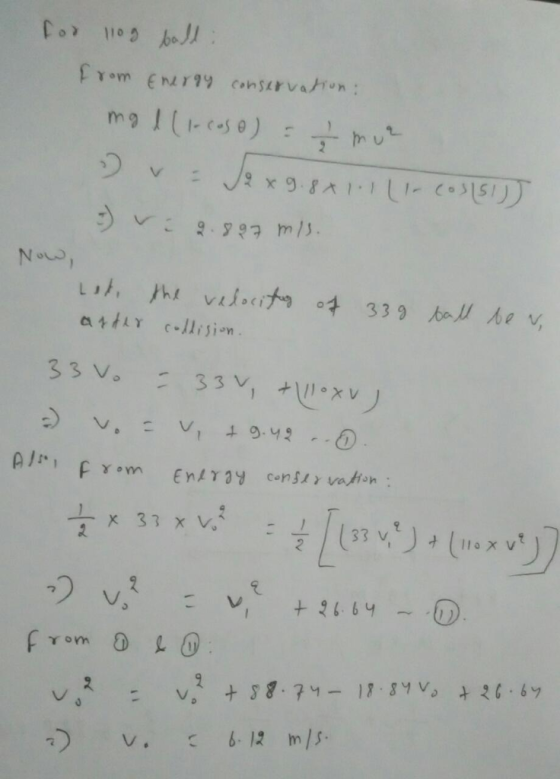 For 110g ball:
From Energy conservation:
mg l (1 - cos θ) = 1/2 mv²
=) v = √(2 x 9.8 x 1.1 (1 - cos(51)))
=) v = 2.827 m/s.
Now,
Let, the velocity of 33g ball be v₁
after collision.
33 V₀ = 33 V₁ + (110 x v)
=) V₀ = V₁ + 9.42 -- ①.
Also, From Energy conservation:
1/2 x 33 x V₀² = 1/2 [(33 V₁²) + (110 x v²)]
=) V₀² = V₁² + 26.64 -- ⑪.
From ① & ⑪:
V₀² = V₀² + 88.74 - 18.84 V₀ + 26.64
=) V₀ = 6.12 m/s.